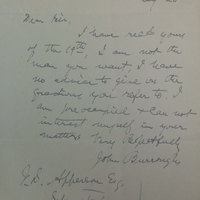 Dear Sir,
I have recd yours
of the 19th, I am not the
man you want, I have
no advice to give on the
question you refer to I
am preoccupied & can not
interest myself in your
matters Very Respectfully
John Burroughs
J. S. Apperson Esq.